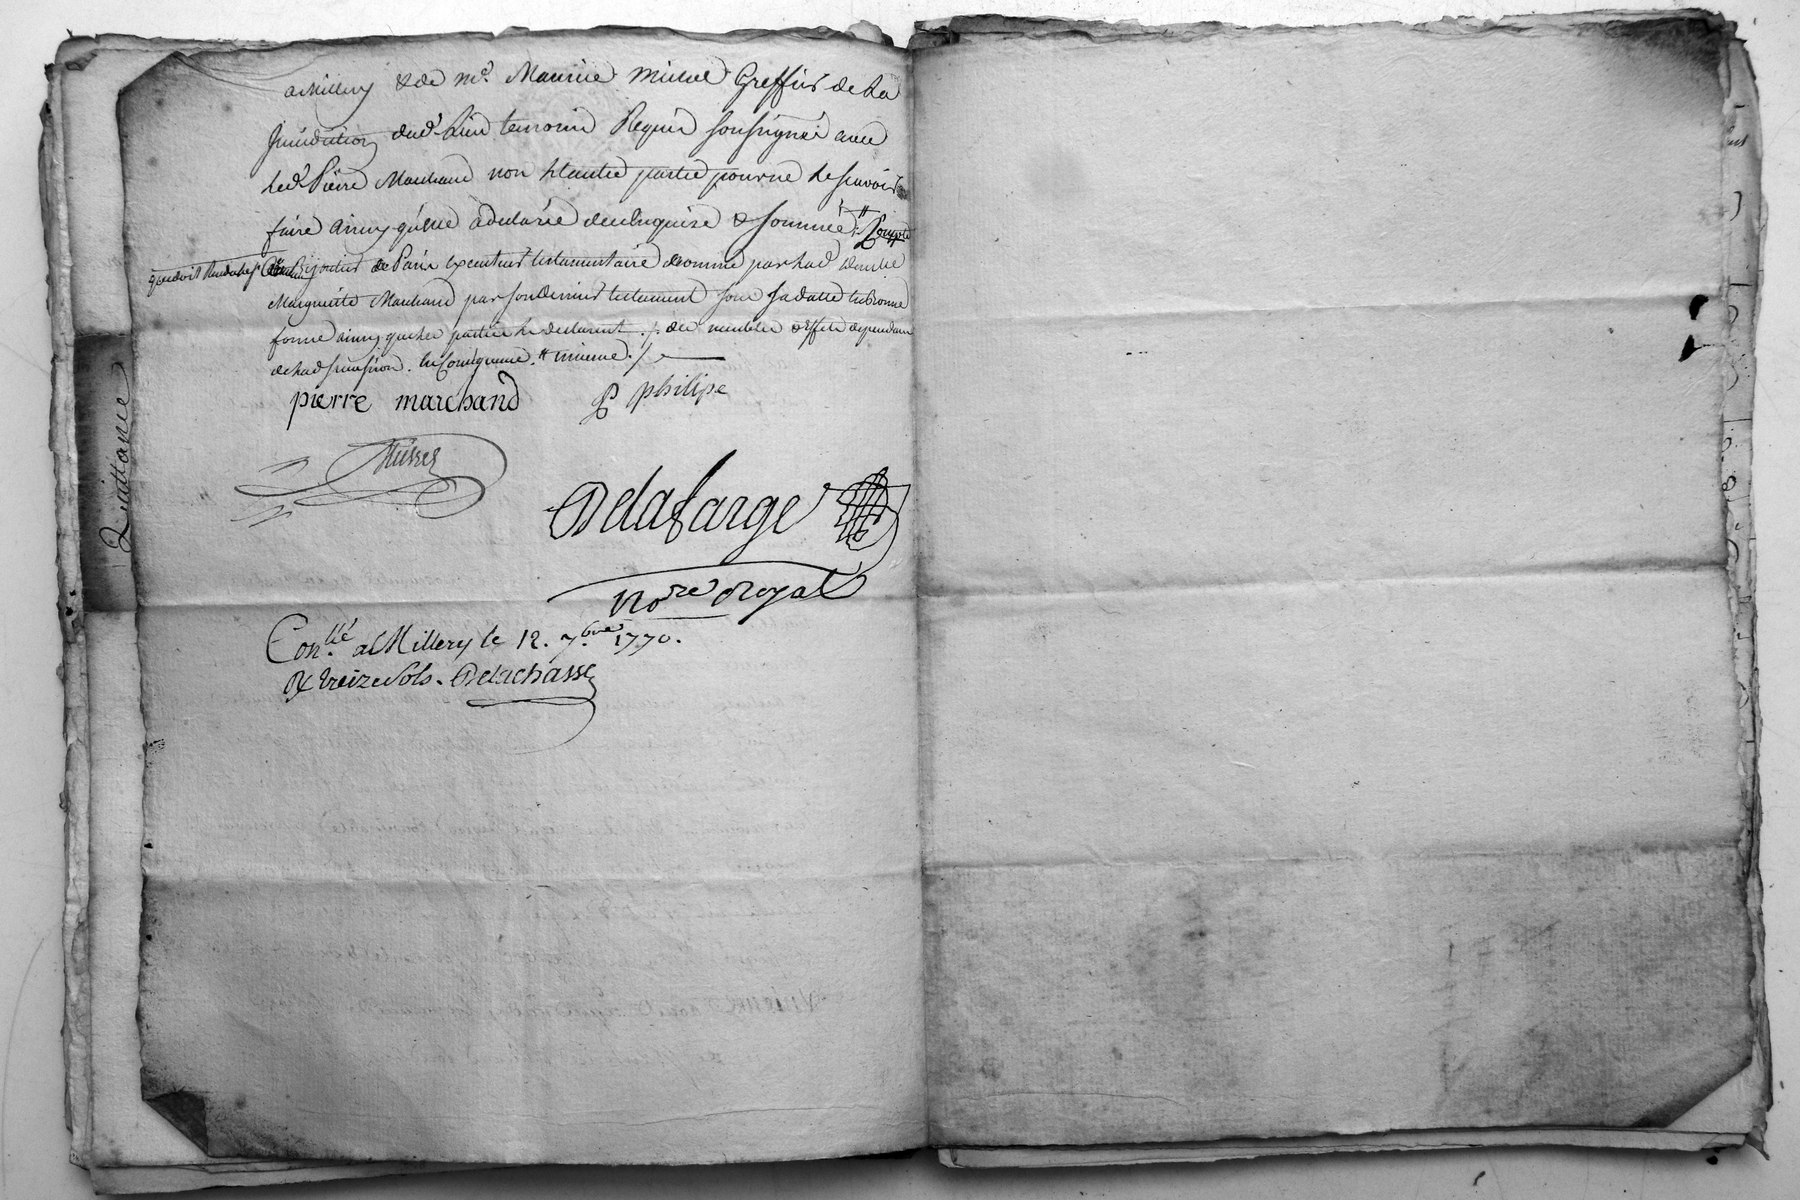 a Millery & de me. Maurice Greffier de la
Juridiction dud. Lieu temoins Requis soussignés avec
led. Pierre Marchand non l'autre partie pour ne le scavoir
faire ainsy qu'elle a déclaré de ce enquise & sommée
que doit Bijoutier de Paris executeur testamentaire nommé par lad.
Marguerite Marchand par son dernier testament sous sa datte en Bonne
forme ainsy que les parties le declarent ./. des meubles & effets dependant
de lad. succession.
pierre marchand philipe
Delafarge
Nore Royal
Conllé a Millery le 12. 7bre 1770.
Rx treize sols. Delachasse
Quittance